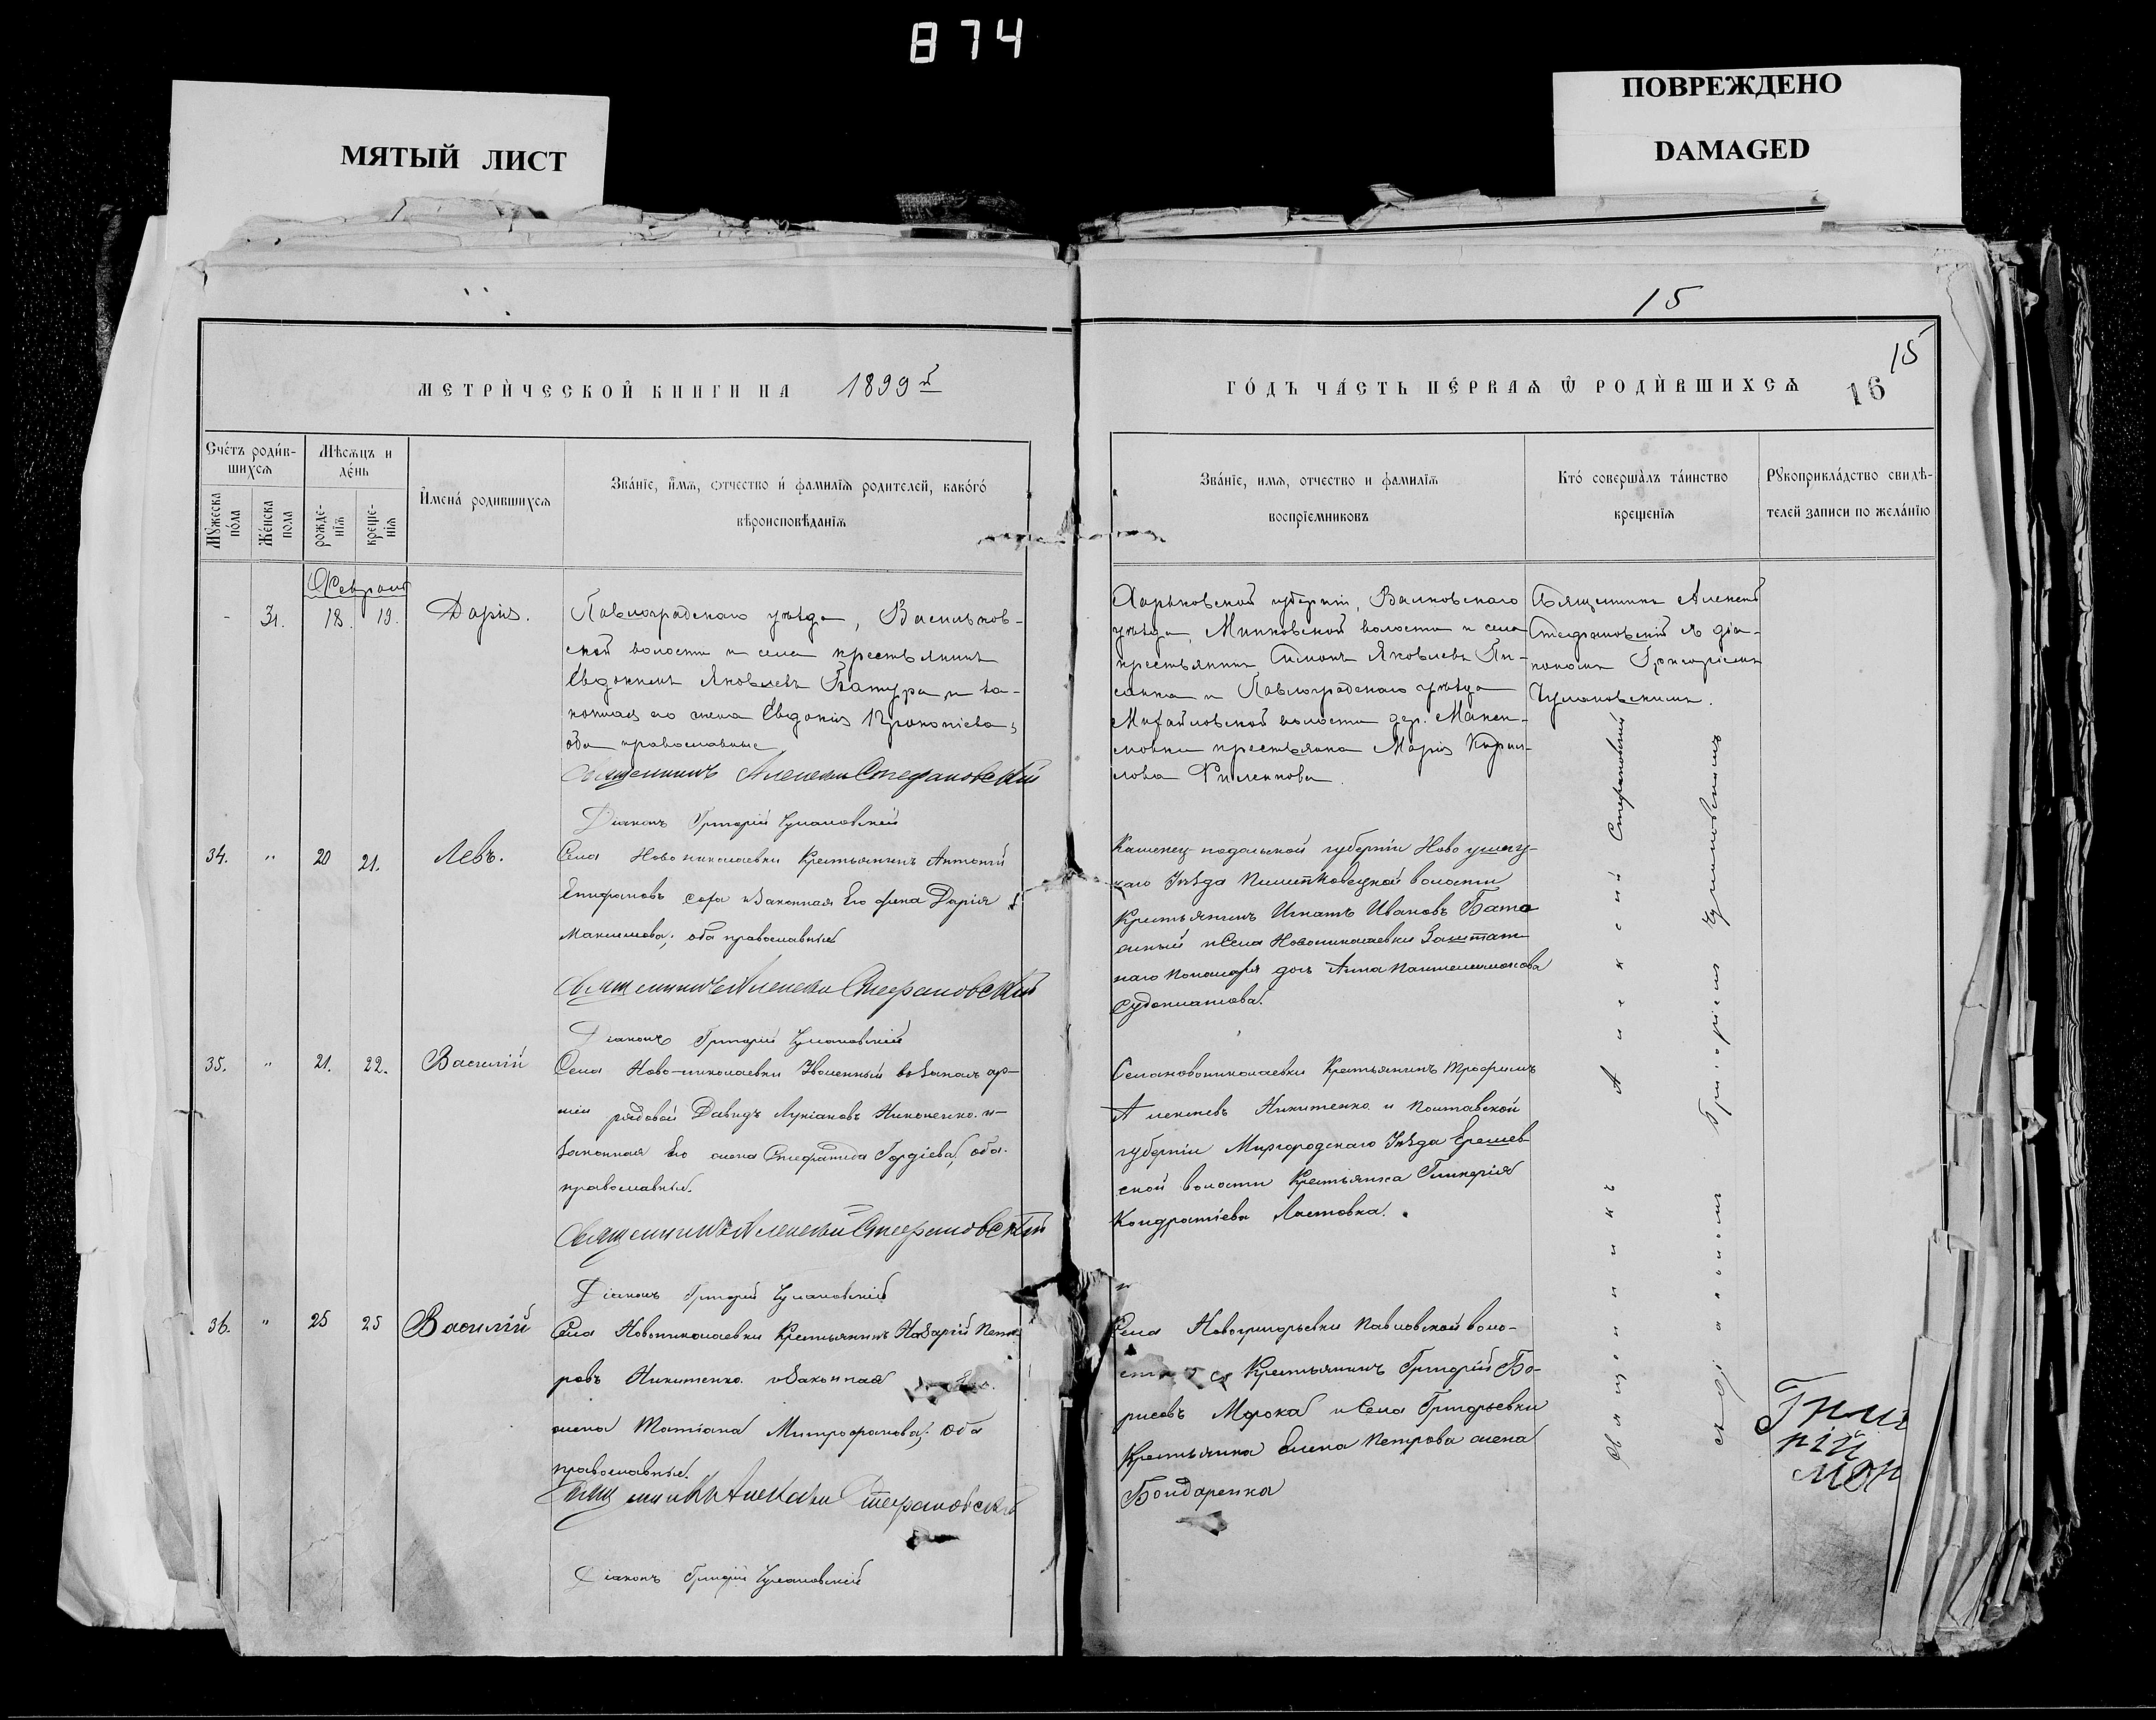 874
МЯТЫЙ ЛИСТ
ПОВРЕЖДЕНО
DAMAGED
15
15
16
МЕТРИ́ЧЕСКОЙ КНИГИ НА 1899 й
ГО́ДЪ ЧА́СТЬ ПЕ́РВАѦ Ѡ҆ РОДИ́ВШИХСѦ
Сче́тъ роди́в-
шихсѧ
Мѣсѧцъ и
де́нь
Мꙋжеска
по́ла
Же́нска
пола
рожде-
нїѧ
креще-
нїѧ
И҆мена́ родившихсѧ
Зва́нїе, и҆мѧ, ѻтчество и҆ фамилїѧ родителей, како́гѡ
вѣроисповѣданїѧ
Зва́нїе, имѧ, отчество и фамилїѧ
воспрїемниковъ
Кто̀ соверша́лъ та́инство
крещенїѧ
Рꙋкоприкла́дство свидѣ-
телей записи по жела́нїю
Февраль
- 31. 18. 19. Дарія.
Павлоградскаго уѣзда, Васильков-
ской волости и села крестьянинъ
Евдокимъ Яковлевъ и за-
конная его жена Евдокія Прокопіева,
оба православные
Священникъ Алексій Стефановскій
Діаконъ Григорій Чулановскій
Харьковской губерніи, Валковскаго
уѣзда, Минковской волости и села
крестьянинъ Симонъ Яковлевъ Пи-
санка и Павлоградскаго уѣзда
Михайловской волости дер. Макси-
мовки крестьянка Марія Кирил-
лова Филенкова.
Священникъ Алексій
Стефановскій съ діа-
кономъ Григоріемъ
Чулановскимъ.
34. " 20 21. Левъ.
Села Новониколаевки Крестьянинъ Антоній
Епифановъ Сера и Законная Его жена Дарія
Максимова; оба православные
Священникъ Алексій Стефановскій
Діаконъ Григорій Чулановскій
Каменец-подольской губерніи Ново ушиц-
каго Уѣзда волости
Крестьянинъ Игнатъ Ивановъ
и Села Новониколаевки Заштат-
наго Пономаря дочь Анна Пантелеимонова
35. " 21. 22. Василій
Села Ново-николаевки Уволенный въ Запасъ ар-
міи рядовой Давидъ Лукіановъ и
Законная Его жена Гордіева, оба
православные.
Священникъ Алексій Стефановскій
Діаконъ Григорій Чулановскій
Села новониколаевки Крестьянинъ Трофимъ
Алексѣевъ Никитенко и Полтавской
губерніи Миргородскаго Уѣзда
ской волости Крестьянка Гликерія
Кондратіева Ластовка.
36. " 25 25 Василій
Села Новониколаевки Крестьянинъ Назарій Пет-
ровъ Никитенко и Законная
жена Татіана Митрофанова; оба
православные.
Священникъ Алексій Стефановскій
Діаконъ Григорій Чулановскій
Села Новогригорьевки Павловской воло-
сти Крестьянинъ Григорій Бо-
рисовъ Морока и Села Григорьевки
Крестьянка Елена Петрова жена
Бондаренка
Священникъ Алексій Стефановскій
съ діакономъ Григоріемъ Чулановскимъ